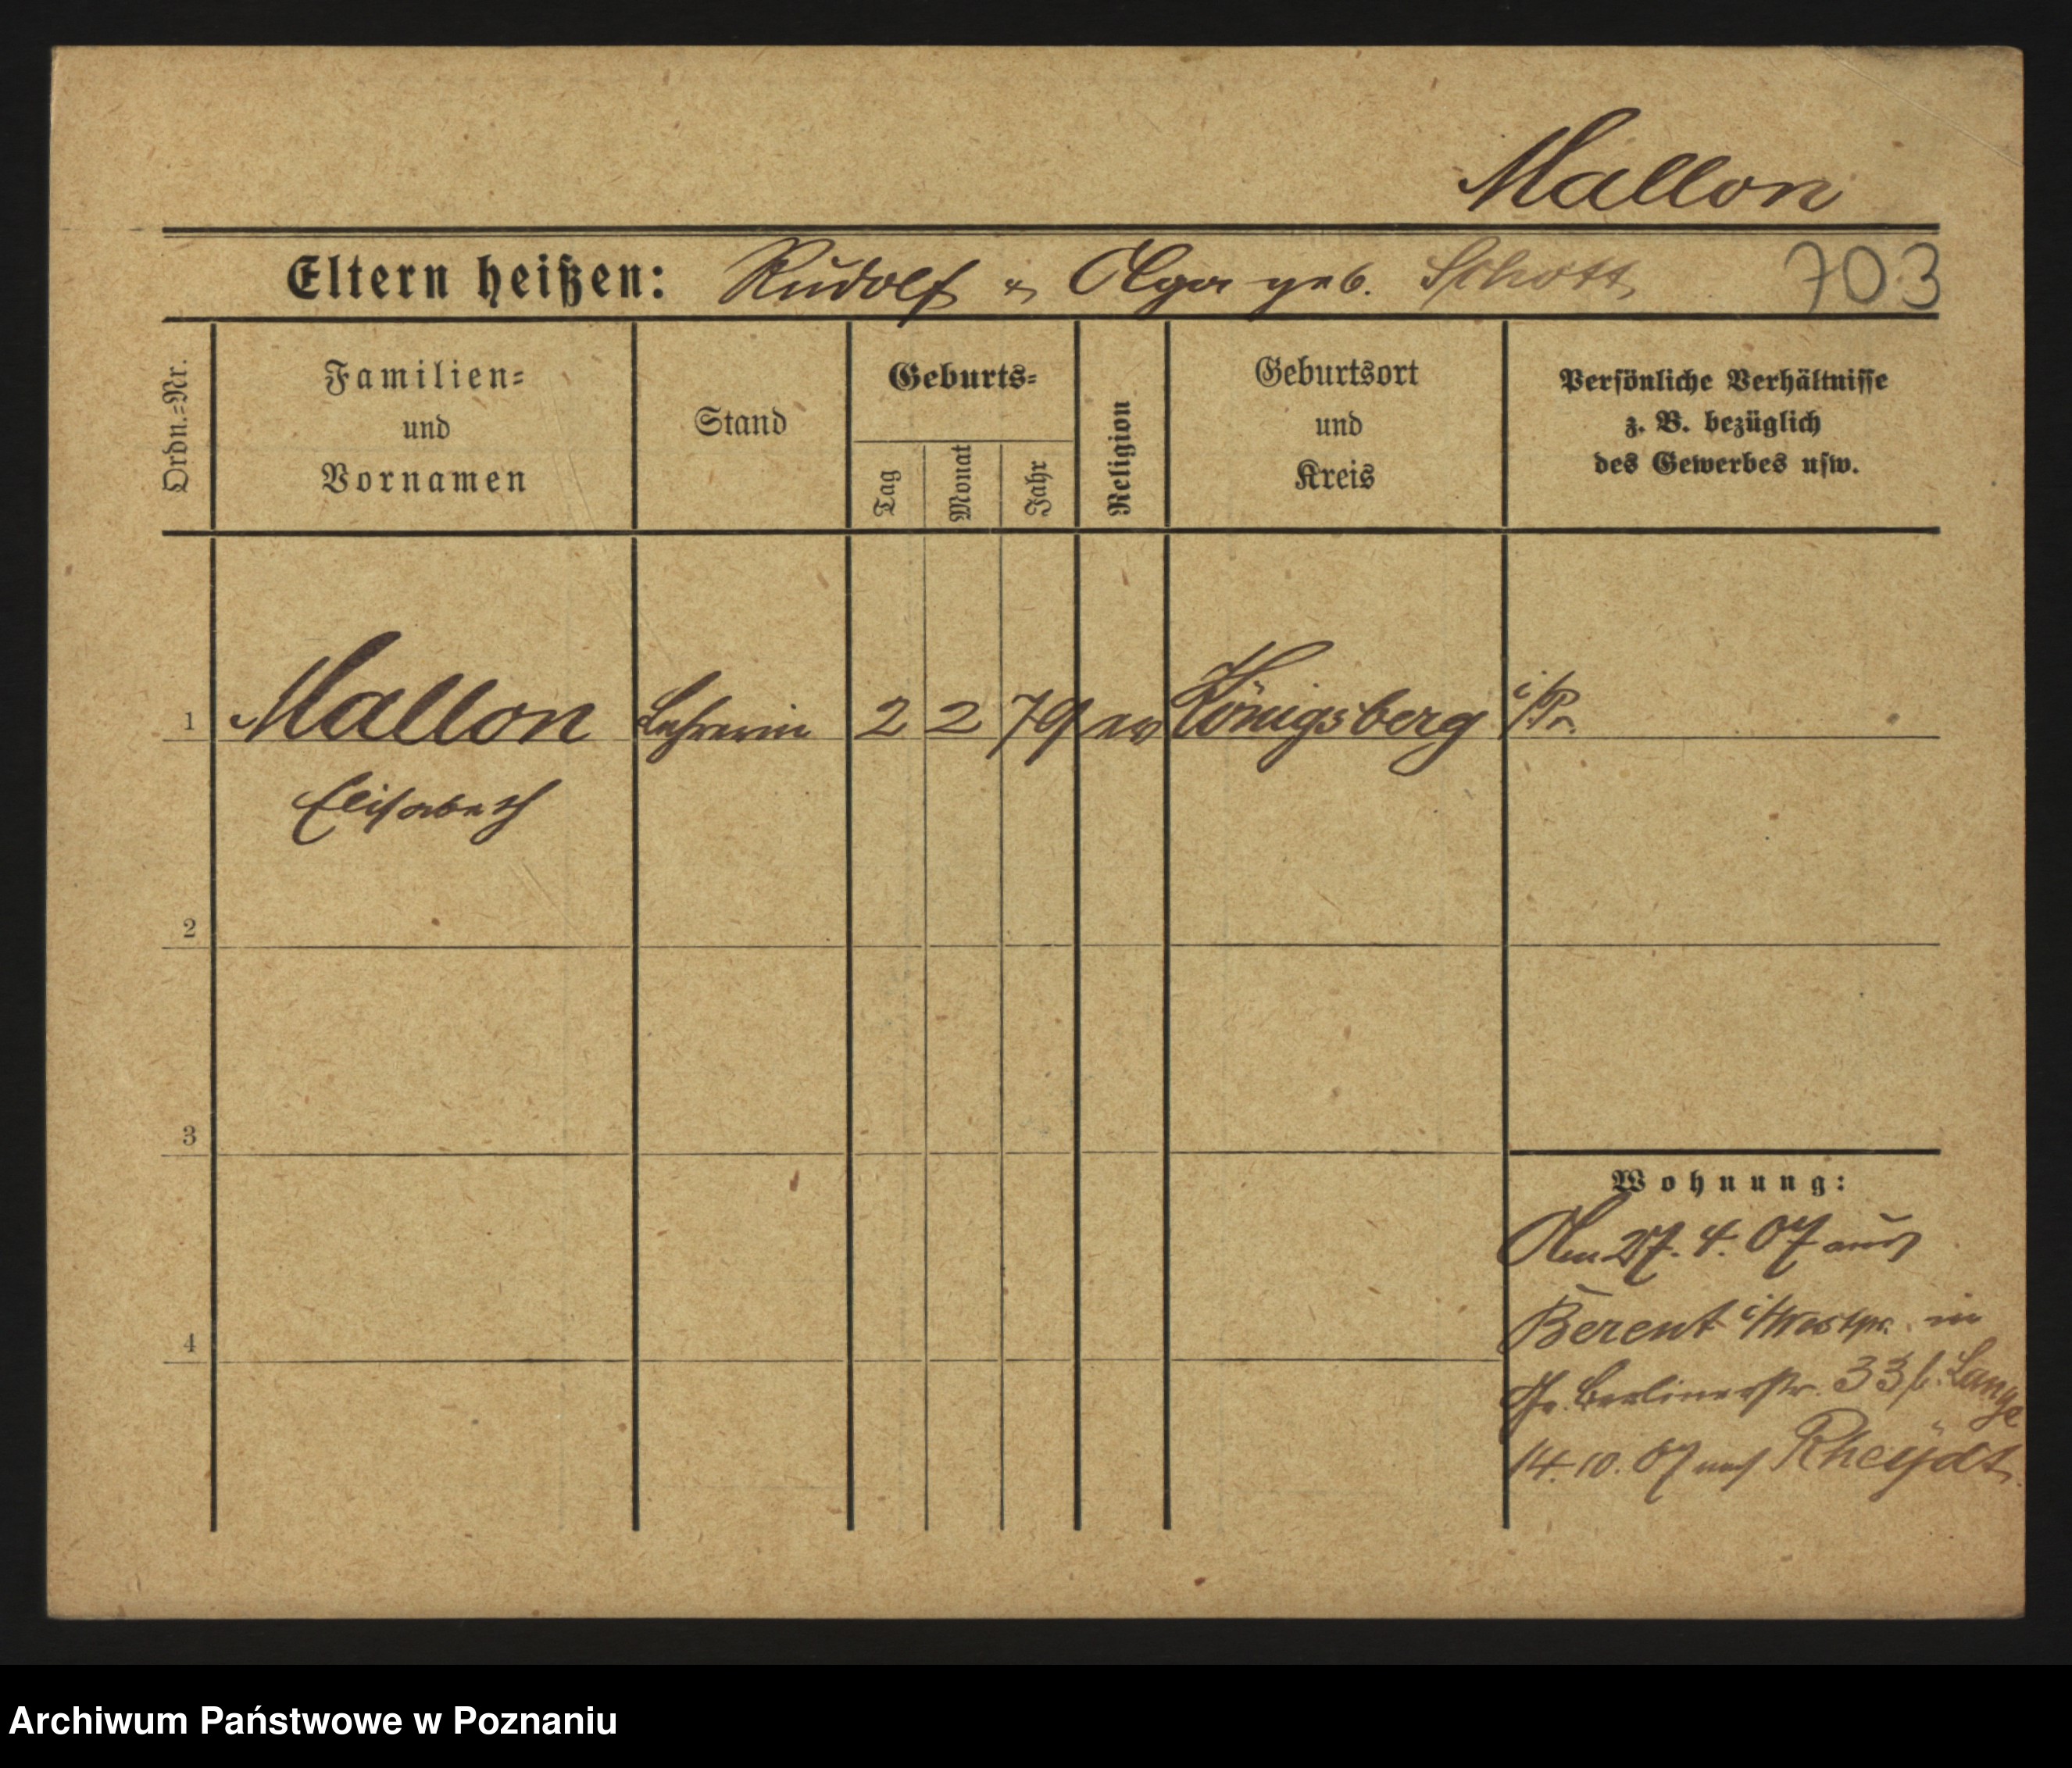 Mallon
Eltern heißen: Rudolf u. Olga geb. Schott 703
Ordn.=Nr.
Familien=
und
Vornamen
Stand
Geburts=
Tag
Monat
Jahr
Religion
Geburtsort
und
Kreis
Persönliche Verhältnisse
z. B. bezüglich
des Gewerbes usw.
1 Mallon Lehrerin 2 2 79 ev Königsberg i/Pr.
Elisabeth
2
3
4
Wohnung:
Am 27. 4. 07 aus
Berent i/Westpr. in
Gr. Berlinerstr. 33 b. Lange
14. 10. 07 nach Rheydt.
Archiwum Państwowe w Poznaniu